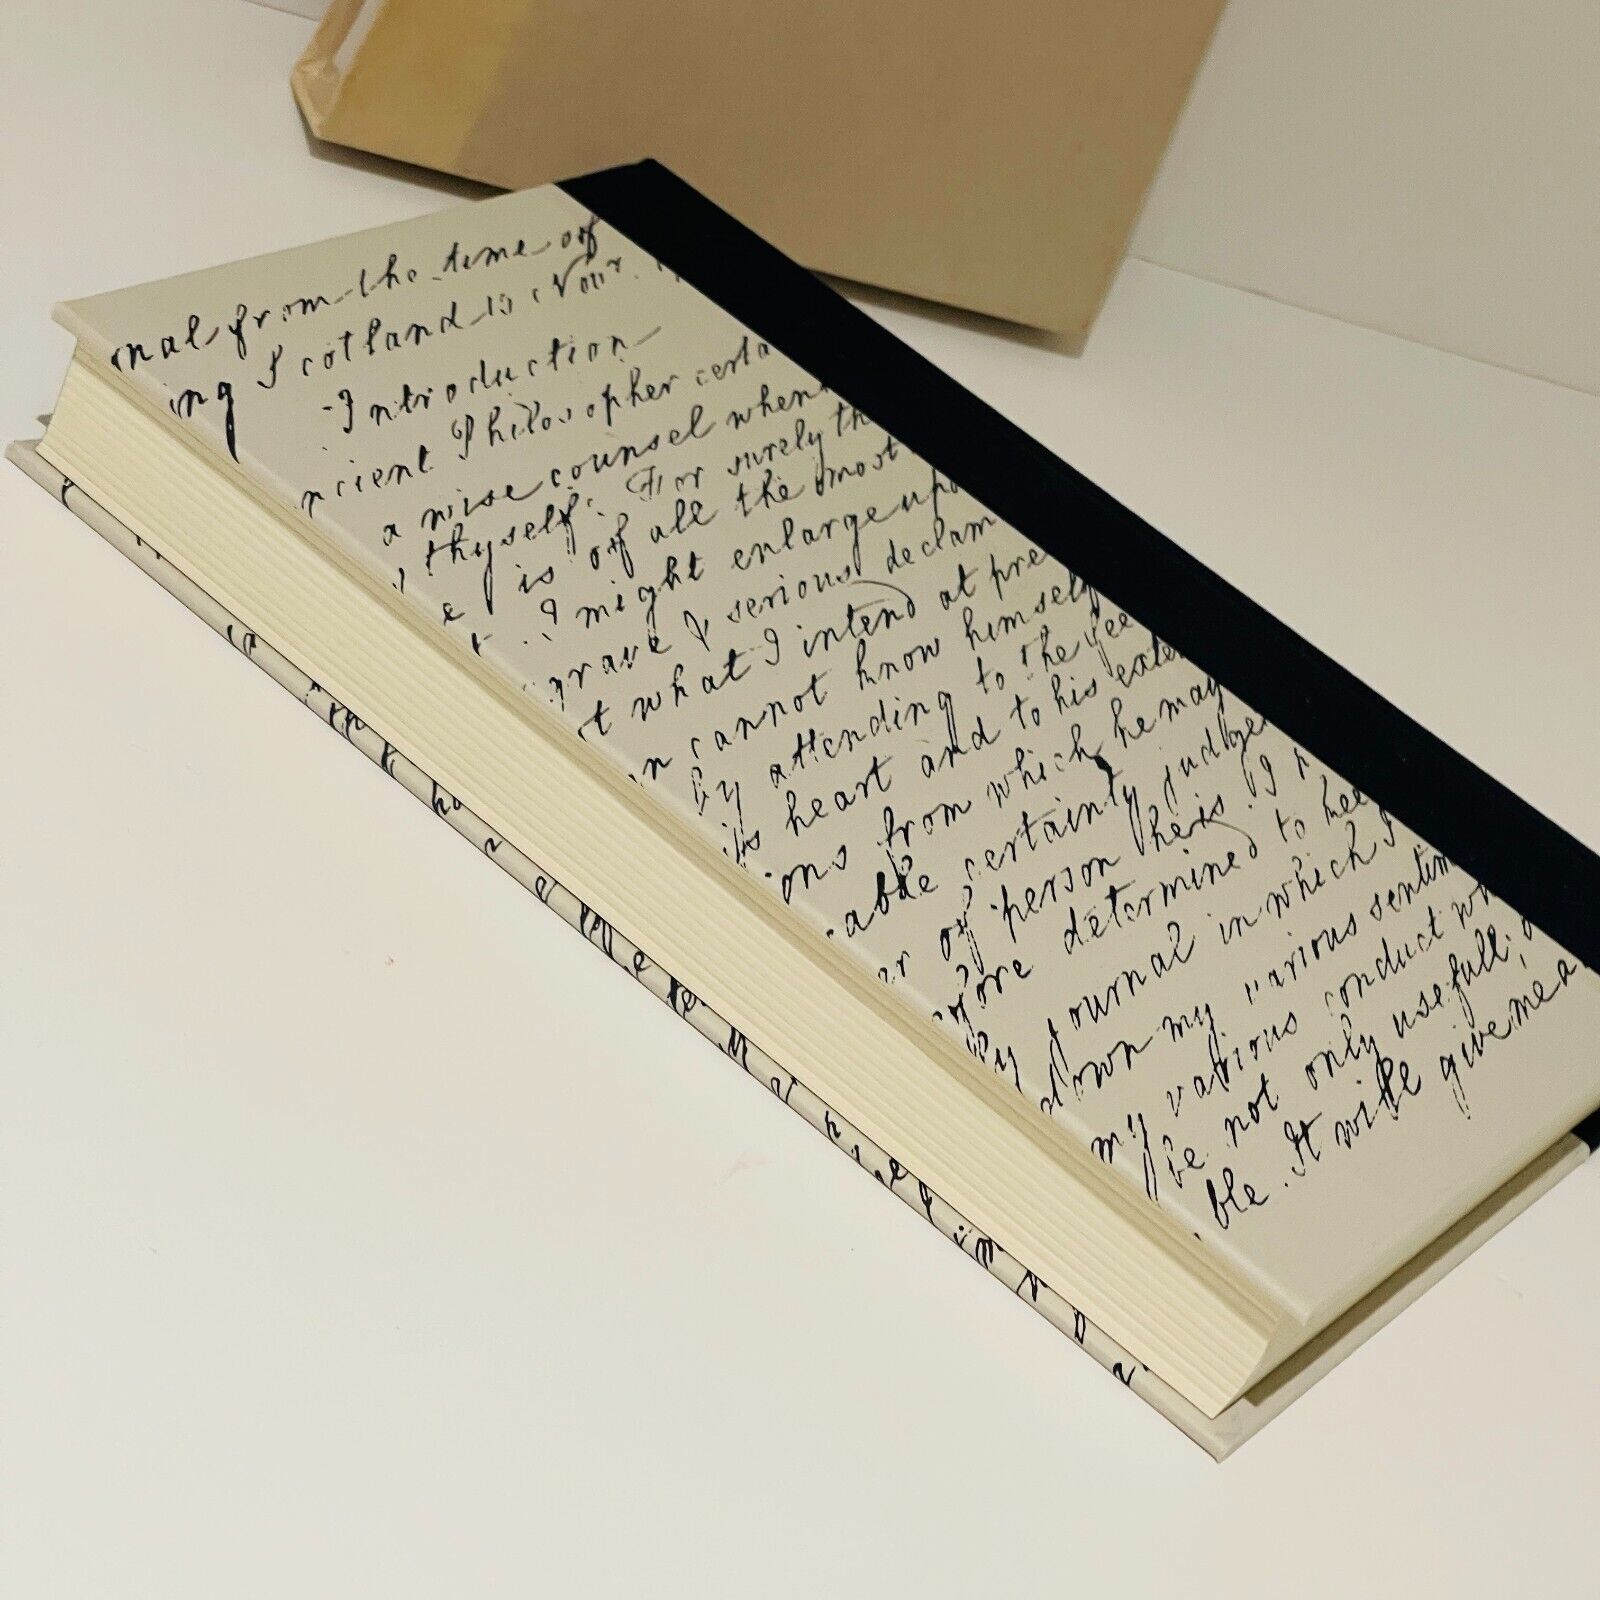 nal from the time of
ing Scotland 15 Novr.
Introduction
ncient Philosopher certa
a wise counsel when
thyself. For surely th
e is of all the most
I might enlarge upo
grave & serious declam
t what I intend at pre
n cannot know himself
by attending to the fee
his heart and to his exter
ions from which he may
able certainty judge
er of person he is. I h
efore determined to kee
ly journal in which I
down my various sentim
my various conduct wh
be not only usefull;
ble. It will give me a